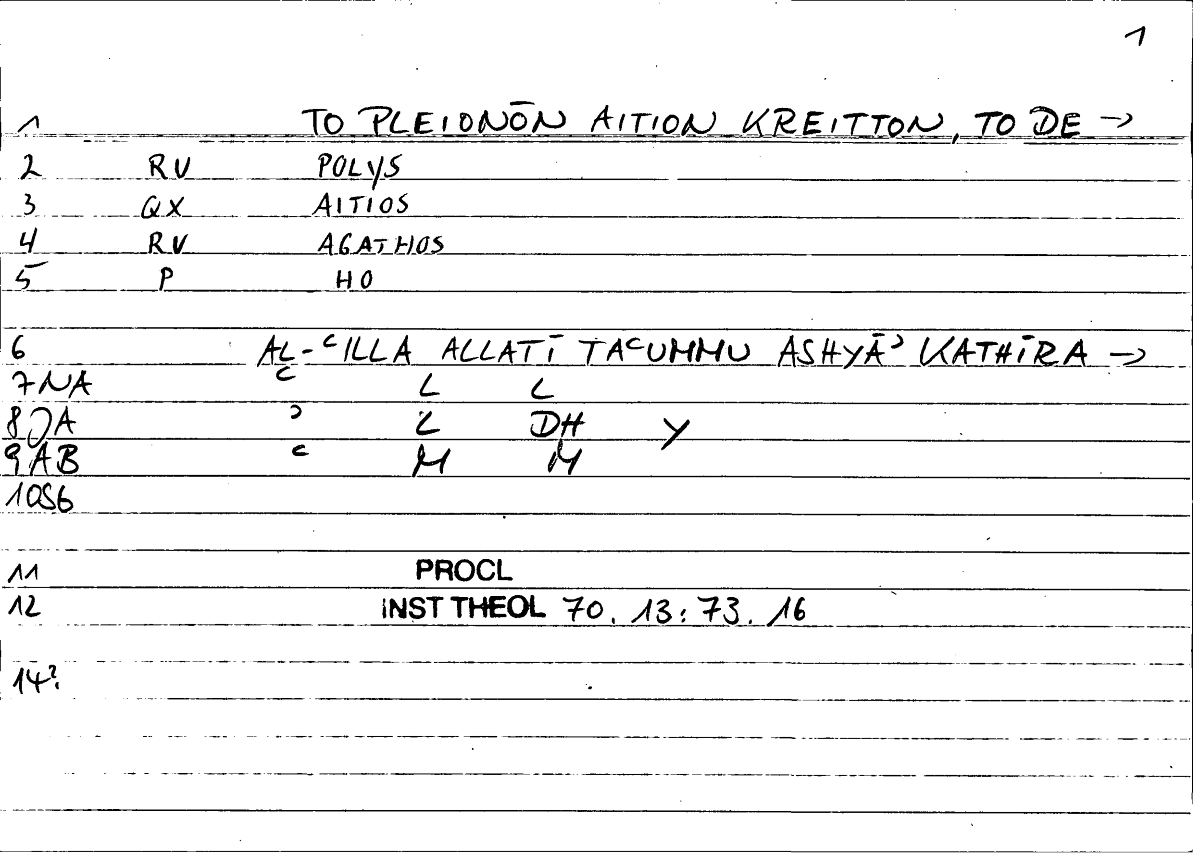 1
1 TO PLEIONŌN AITION KREITTON, TO DE →
2 RV POLYS
3 QX AITIOS
4 RV AGATHOS
5 P HO
6 AL-ʿILLA ALLATĪ TAʿUMMU ASHYĀʾ KATHĪRA →
7 NA ʿ L L
8 JA ʾ L DH Y
9 AB ʿ M M
10 S6
11 PROCL
12 INST THEOL 70. 13: 73. 16
14?